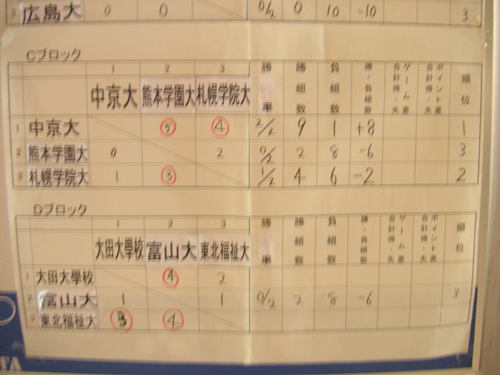 広島大 0 0 0/2 0 10 -10 3
Cブロック
1 2 3
中京大 熊本学園大 札幌学院大 勝率 勝組数 負組数 勝・負組数 ゲーム差合計得・失 ポイント差合計得・失 順位
1 中京大 ⑤ ④ 2/2 9 1 +8 1
2 熊本学園大 0 2 0/2 2 8 -6 3
3 札幌学院大 1 ③ 1/2 4 6 -2 2
Dブロック
1 2 3
大田大學校 富山大 東北福祉大 勝率 勝組数 負組数 勝・負組数 ゲーム差合計得・失 ポイント差合計得・失 順位
1 大田大學校 ④ 2
2 富山大 1 1 0/2 2 8 -6 3
3 東北福祉大 ③ ④